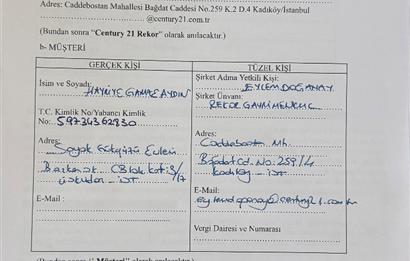 Adres: Caddebostan Mahallesi Bağdat Caddesi No.259 K.2 D.4 Kadıköy/İstanbul
@century21.com.tr
(Bundan sonra “Century 21 Rekor” olarak anılacaktır.)
b- MÜŞTERİ
GERÇEK KİŞİ
İsim ve Soyadı:
HAYRİYE GAMZE AYDIN
T.C. Kimlik No/Yabancı Kimlik
No: 59734362830
Adres:
Soyak Göztepe Evleri
CBlok kat:5/17
Üsküdar - İST
E-Mail :
TÜZEL KİŞİ
Şirket Adına Yetkili Kişi:
EYLEM DOĞANAY
Şirket Ünvanı:
REKOR GAYRİMENKUL
Adres:
Caddebostan Mh.
Bağdat Cd. No: 259/4
Kadıköy - İST
E-Mail:
Vergi Dairesi ve Numarası